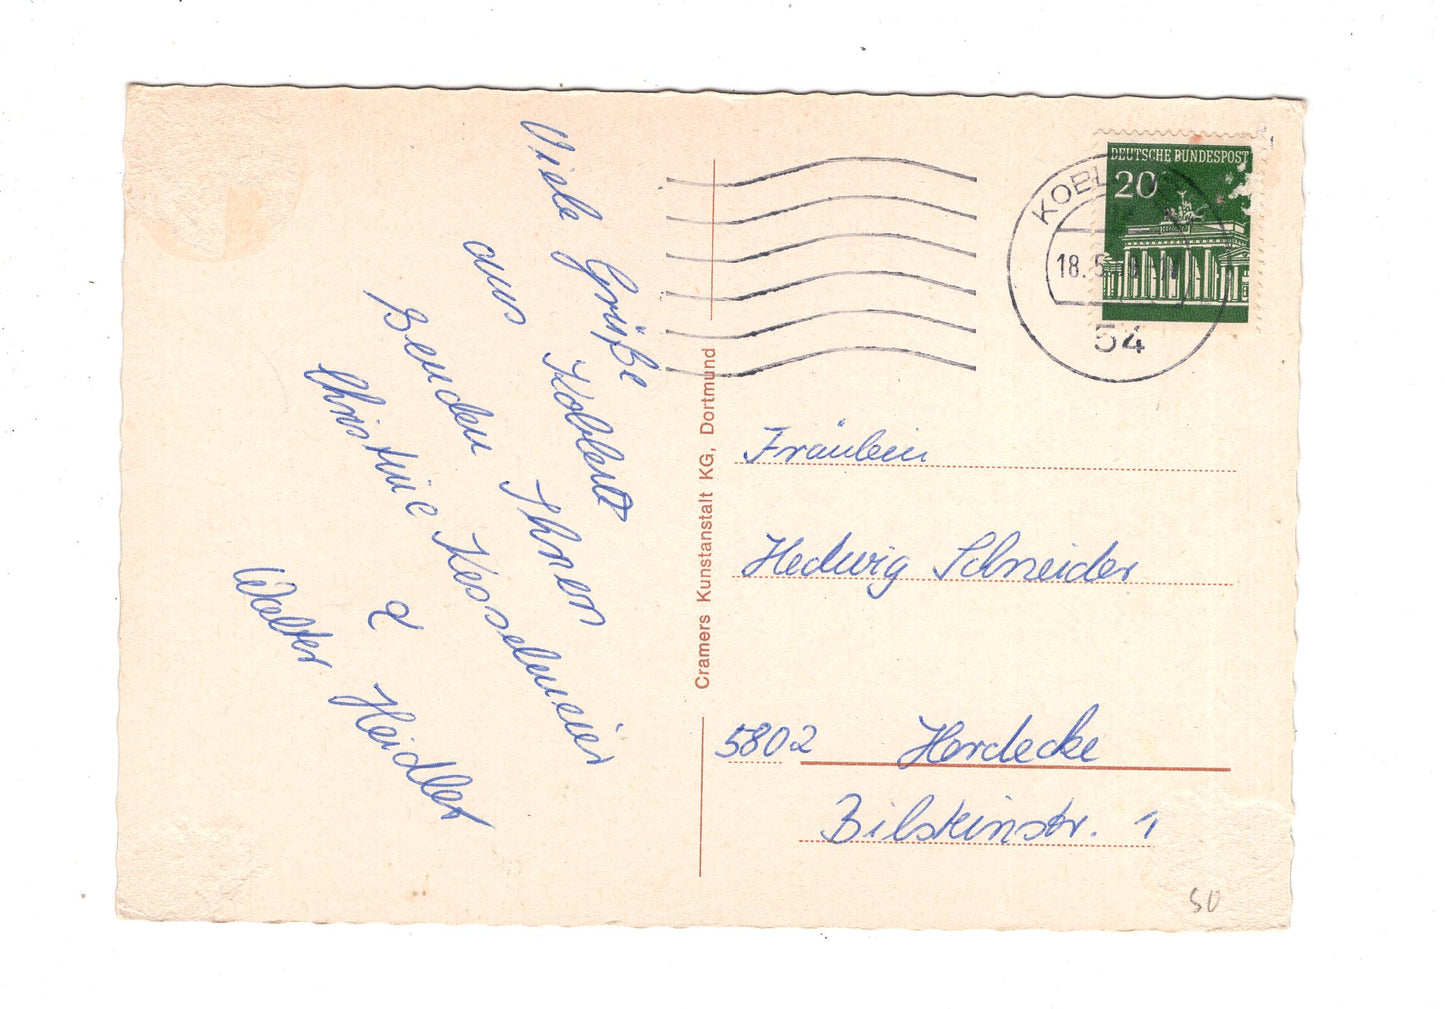 Viele Grüße
aus Koblenz
senden Ihnen
Christine Kesselmeier
&
Walter Heidler
Cramers Kunstanstalt KG, Dortmund
DEUTSCHE BUNDESPOST
20
18.5.
54
Fräulein
Hedwig Schneider
5802 Herdecke
Bilsteinstr. 1
50